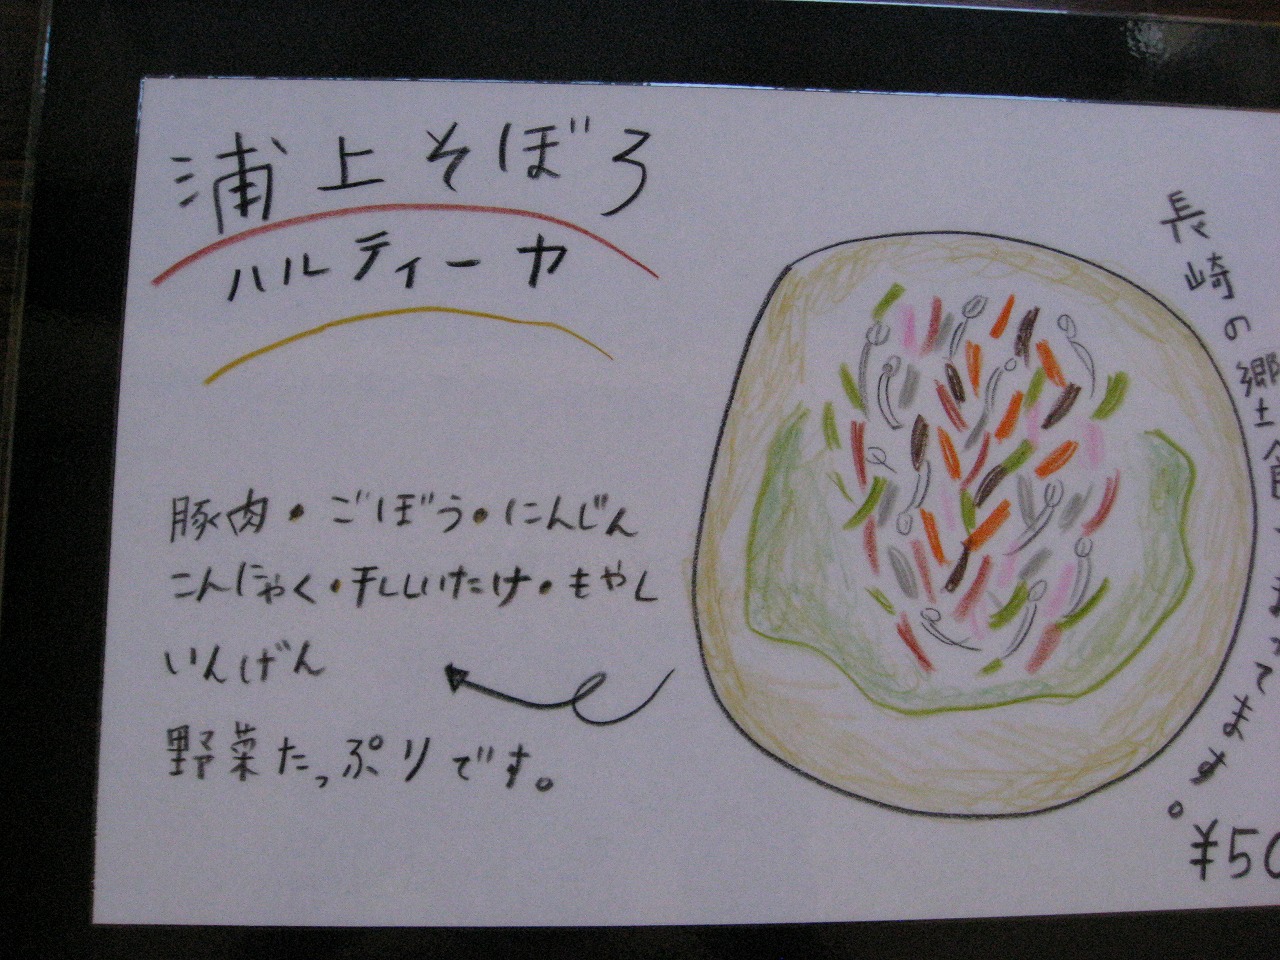 浦上そぼろ
ハルティーカ
豚肉・ごぼう・にんじん
こんにゃく・干ししいたけ・もやし
いんげん
野菜たっぷりです。
長崎の郷土食 ます。
¥50